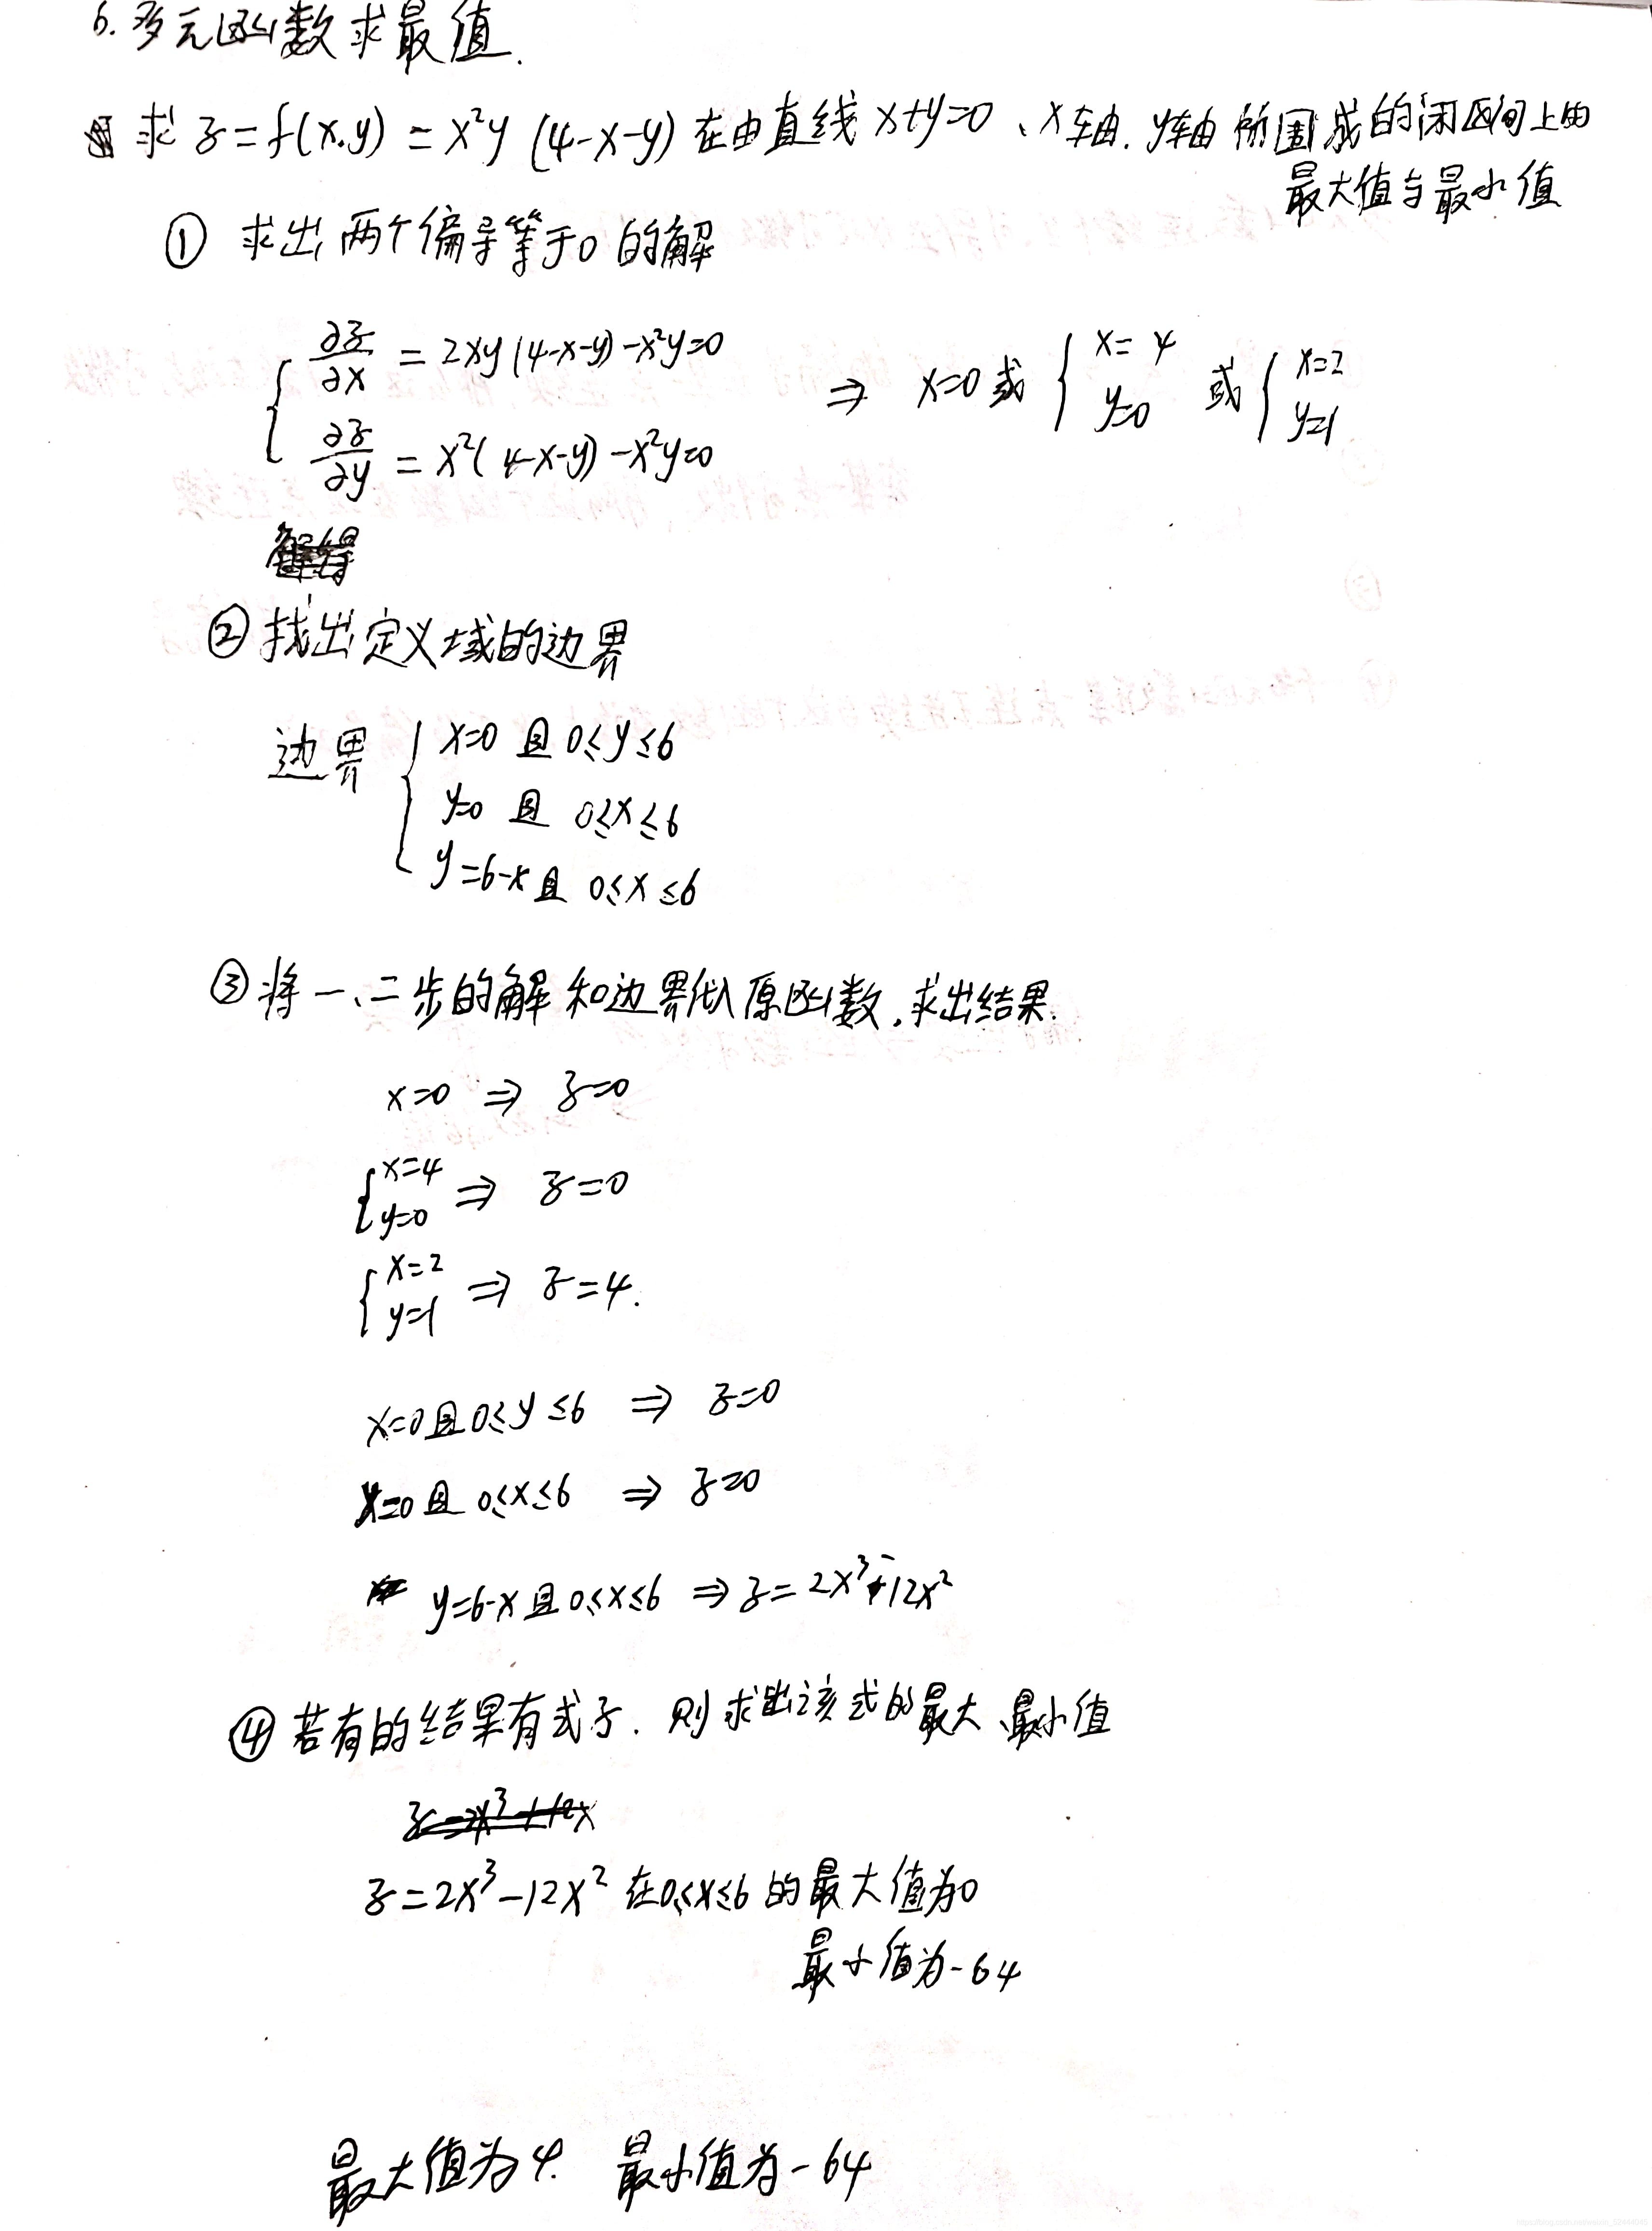 6. 多元函数求最值.
求 z=f(x.y) = x²y (4-x-y) 在由直线 x+y=0、x轴. y轴所围成的闭区间上的
最大值与最小值
① 求出两个偏导等于0的解
{ ∂z/∂x = 2xy(4-x-y)-x²y=0
∂z/∂y = x²(4-x-y)-x²y=0
⇒ x=0 或 { x=4 y=0 或 { x=2 y=1
② 找出定义域的边界
边界 { x=0 且 0≤y≤6
y=0 且 0≤x≤6
y=6-x 且 0≤x≤6
③ 将一、二步的解和边界代入原函数,求出结果.
x=0 ⇒ z=0
{ x=4 y=0 ⇒ z=0
{ x=2 y=1 ⇒ z=4.
x=0 且 0≤y≤6 ⇒ z=0
y=0 且 0≤x≤6 ⇒ z=0
y=6-x 且 0≤x≤6 ⇒ z=2x³-12x²
④ 若有的结果有式子. 则求出该式的最大、最小值
z=2x³-12x² 在0≤x≤6的最大值为0
最小值为-64
最大值为4. 最小值为-64